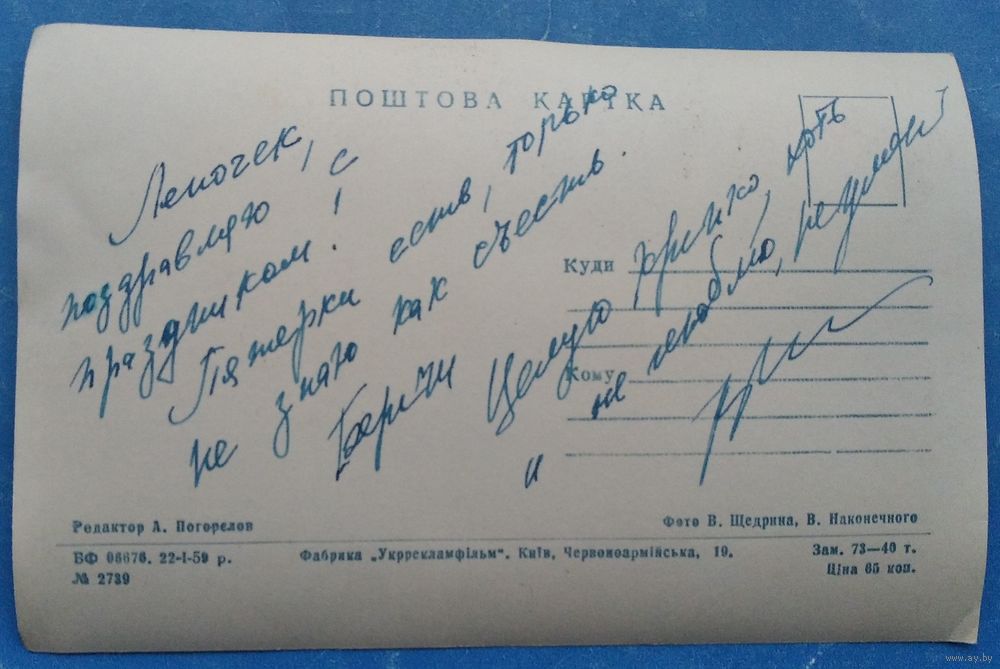 ПОШТОВА КАРТКА
Леночек,
поздравляю с
праздником!
Пятерки есть, только
не знаю как съесть.
Целую крепко, хоть
и не
Куди
Кому
Редактор А. Погорєлов
Фото В. Щедрина, В. Наконечного
БФ 06676. 22-I-59 р.
№ 2739
Фабрика „Укррекламфільм“. Київ, Червоноармійська, 19.
Зам. 73—40 т.
Ціна 65 коп.
www.ay.by